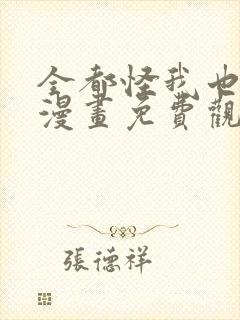 全都怪我也
漫畫免費觀
張德祥